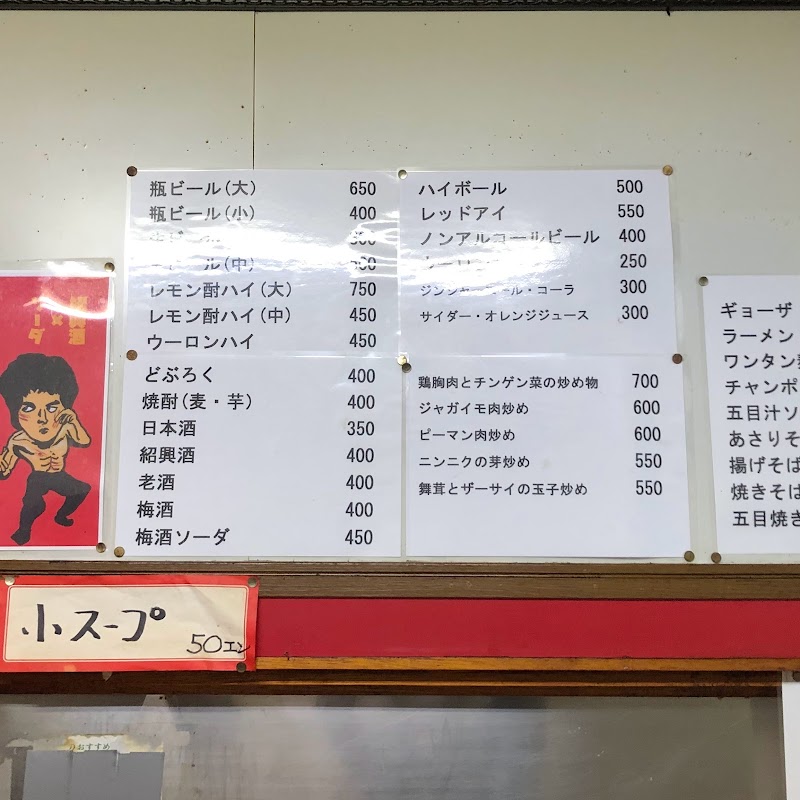 瓶ビール(大) 650
瓶ビール(小) 400
ール(中)
レモン酎ハイ(大) 750
レモン酎ハイ(中) 450
ウーロンハイ 450
どぶろく 400
焼酎(麦・芋) 400
日本酒 350
紹興酒 400
老酒 400
梅酒 400
梅酒ソーダ 450
ハイボール 500
レッドアイ 550
ノンアルコールビール 400
250
ジンジャーエール・コーラ 300
サイダー・オレンジジュース 300
鶏胸肉とチンゲン菜の炒め物 700
ジャガイモ肉炒め 600
ピーマン肉炒め 600
ニンニクの芽炒め 550
舞茸とザーサイの玉子炒め 550
ギョーザ
ラーメン
ワンタン
チャンポ
五目汁ソ
あさりそ
揚げそば
焼きそば
五目焼き
小スープ
50エン
おすすめ